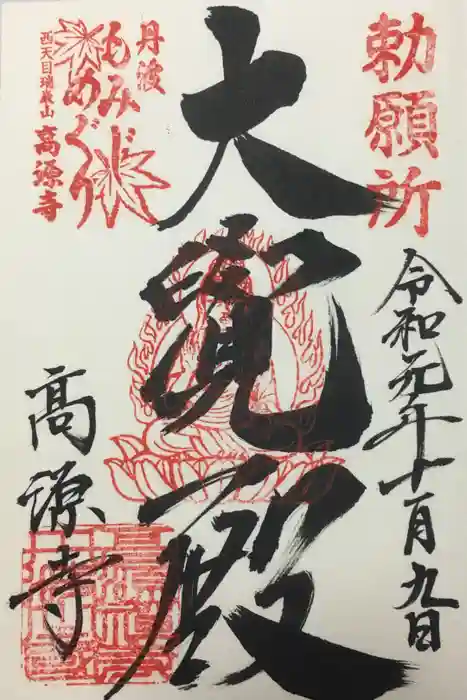 勅願所
令和元年十一月九日
大覚殿
丹波
もみじめぐり
西天目瑞巌山
高源寺
高源寺